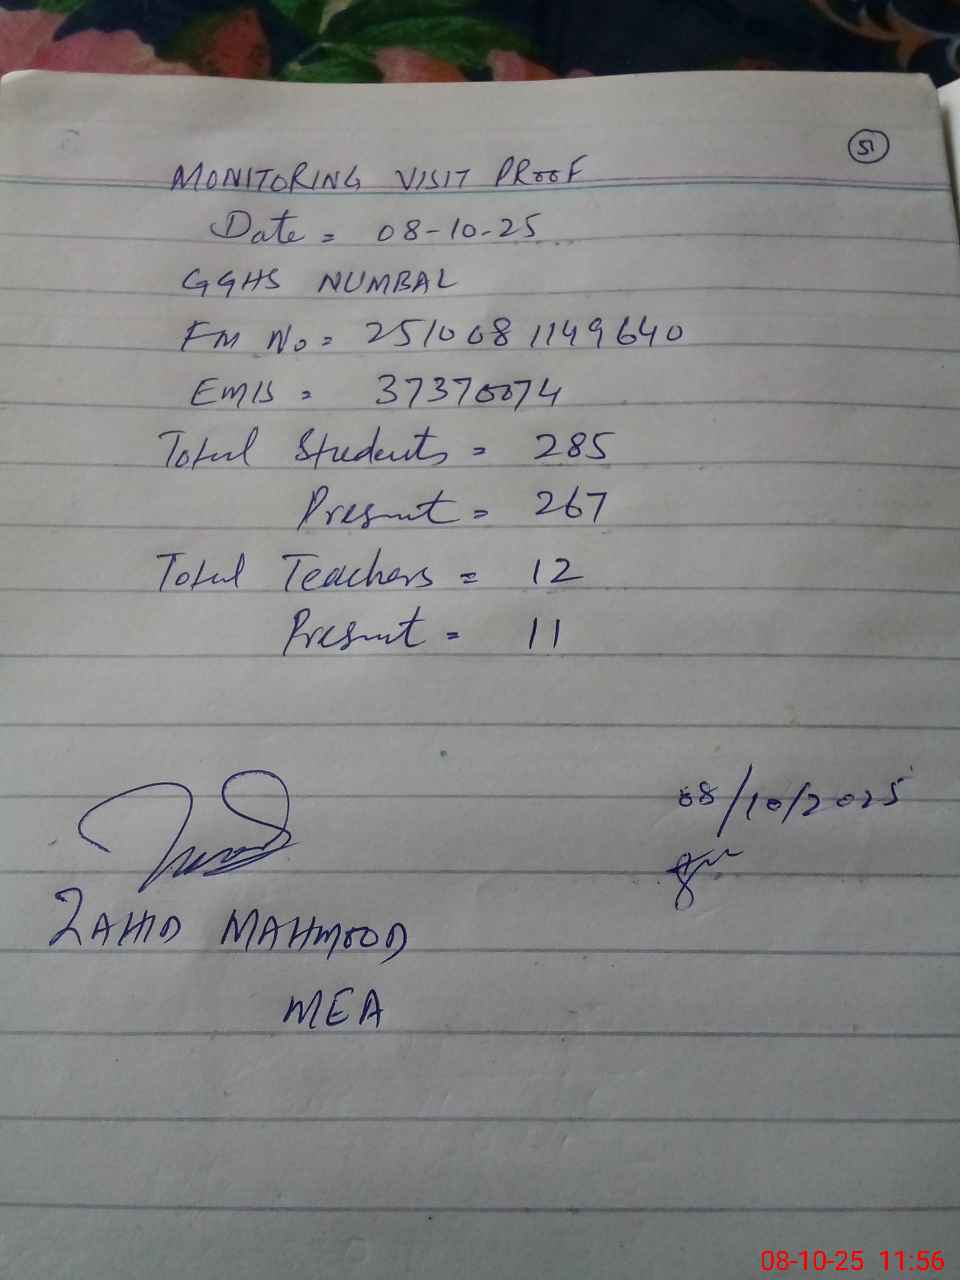 51
MONITORING VISIT PROOF
Date = 08-10-25
GGHS NUMBAL
FM No = 2510081149640
EMIS = 37370074
Total Students = 285
Present = 267
Total Teachers = 12
Present = 11
08/10/2025
ZAHID MAHMOOD
MEA
08-10-25 11:56